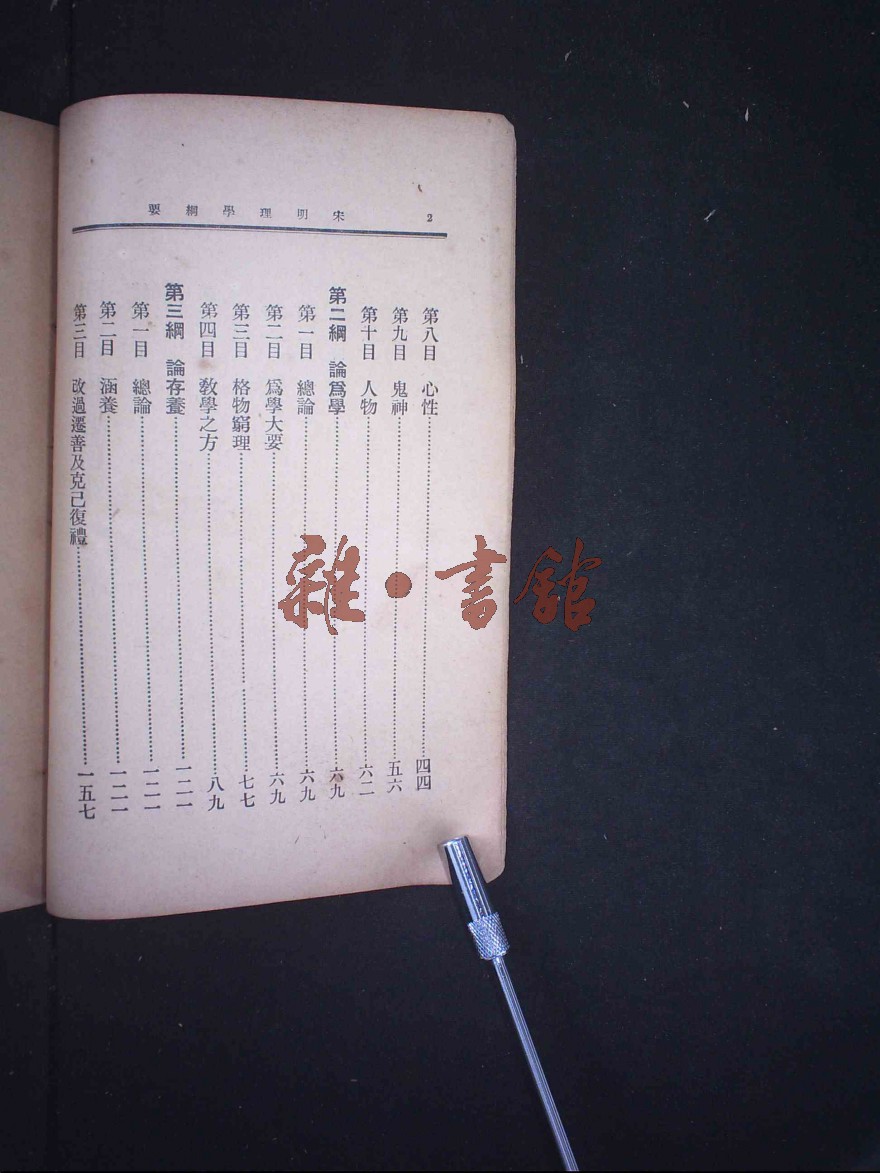 宋明理學綱要 2
第八目 心性……四四
第九目 鬼神……五六
第十目 人物……六二
第二綱 論爲學……六九
第一目 總論……六九
第二目 爲學大要……六九
第三目 格物窮理……七七
第四目 敎學之方……八九
第三綱 論存養……一二一
第一目 總論……一二一
第二目 涵養……一二一
第三目 改過遷善及克己復禮……一五七
雜·書館